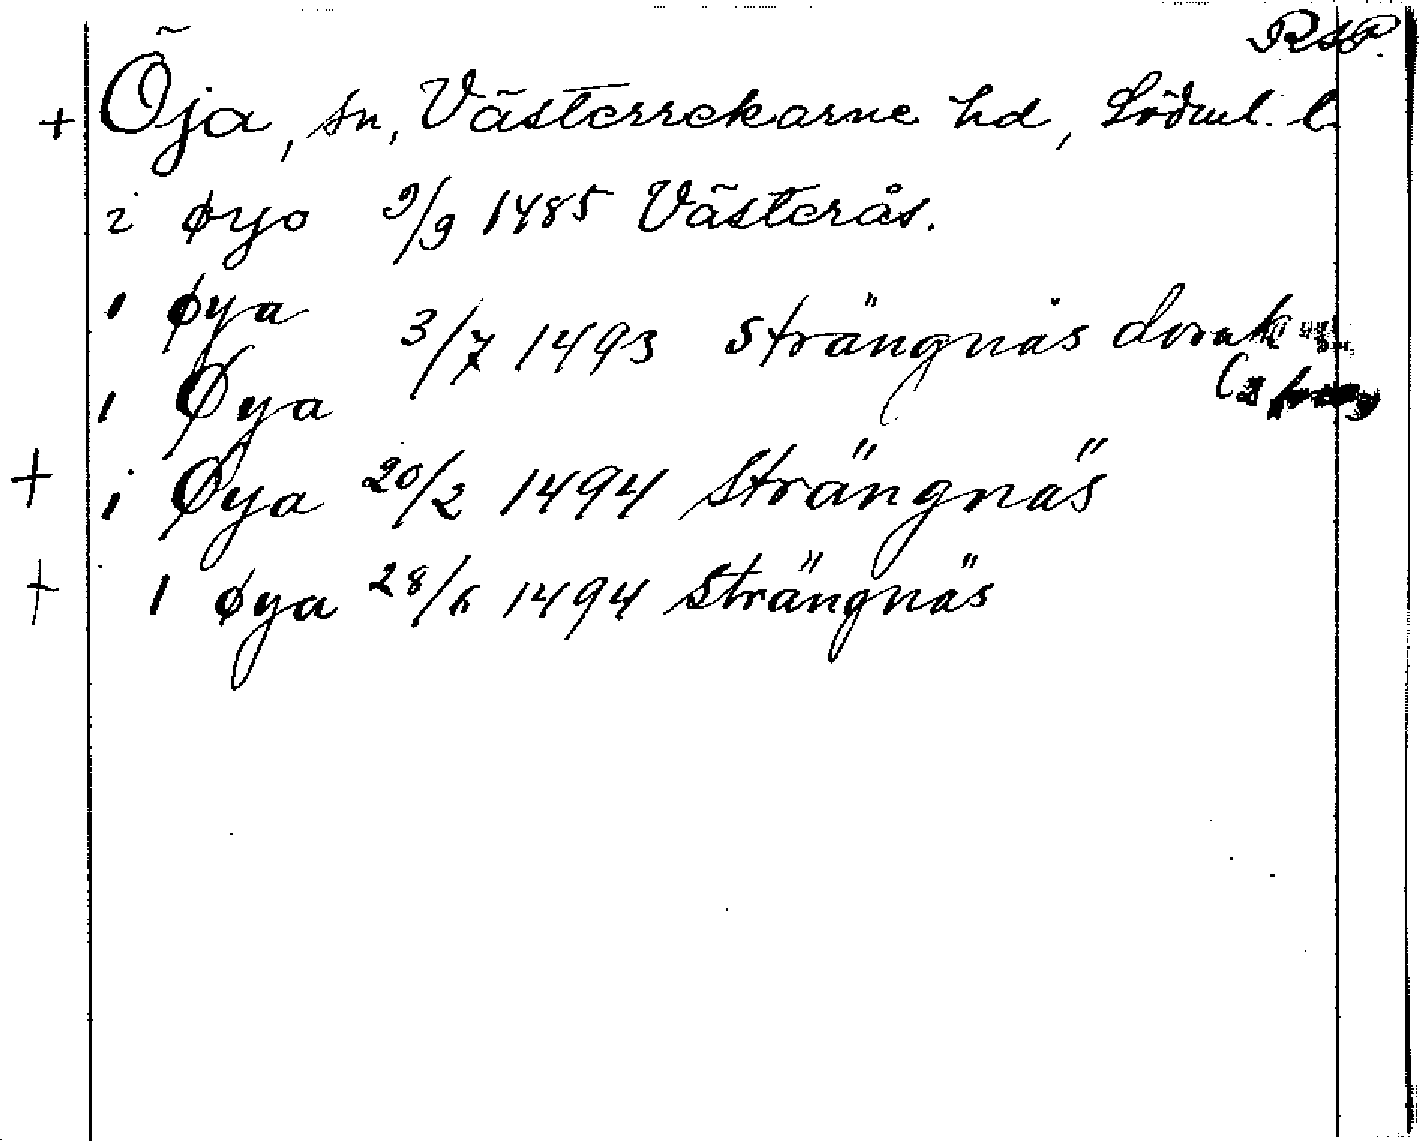 RAP.
+ Öja, sn, Västerrekarne hd, Södml. l.
i øyo 9/9 1485 Västerås.
i øya 3/7 1493 Strängnäs domk
i Øya
+ i Øya 20/2 1494 Strängnäs
+ i øya 28/6 1494 Strängnäs